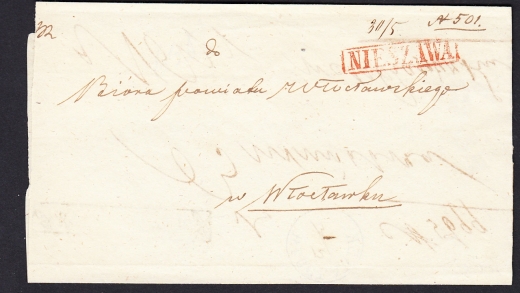 30/5 N 501.
do
NIESZAWA
Bióra powiatu Włocławskiego
w Włocławku